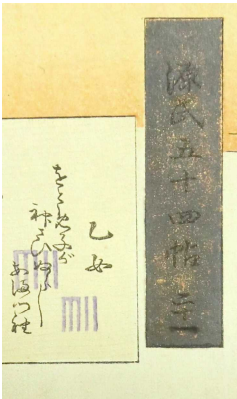 源氏五十四帖 廿一
乙女
をとめ子が
神さひぬらし
あまつ袖